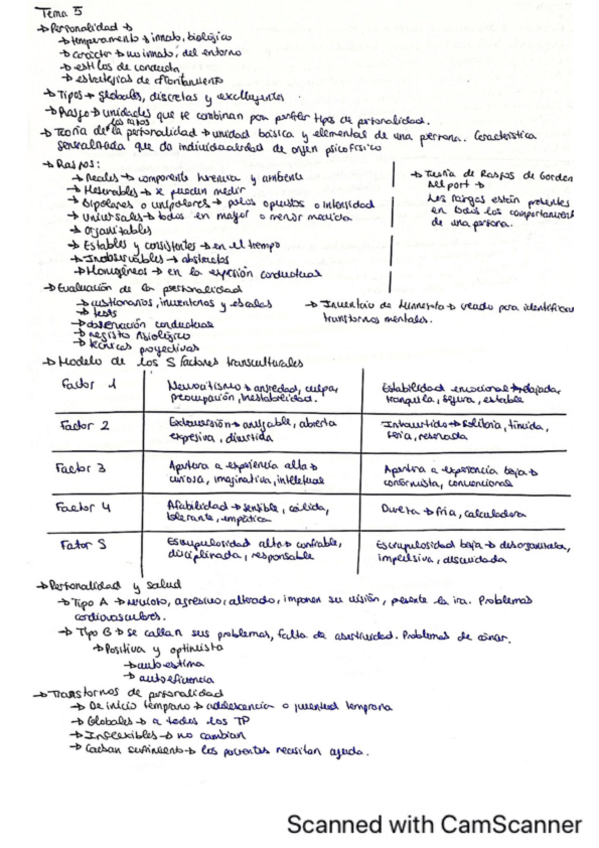 Tema 5
→ Personalidad →
→ temperamento → innato, biológico
→ carácter → no innato, del entorno
→ estilos de conducta
→ estrategias de afrontamiento
→ Tipos → globales, discretas y excluyentes.
→ Rasgo → unidades que se combinan para perfilar tipos de personalidad.
→ Teoría de los rasgos de la personalidad → unidad básica y elemental de una persona. Característica
generalizada que da individualidad de orden psicofísico
→ Rasgos:
→ Reales → componente herencia y ambiente
→ Mesurables → se pueden medir
→ Bipolares o unipolares → polos opuestos o intensidad
→ Universales → todos en mayor o menor medida
→ Organizables
→ Estables y consistentes → en el tiempo
→ Inobservables → abstractos
→ Homogéneos → en la expresión conductual
→ Teoría de Rasgos de Gorden
Allport →
Los rasgos están presentes
en todos los comportamientos
de una persona.
→ Evaluación de la personalidad
→ cuestionarios, inventarios y escalas
→ tests
→ observación conductual
→ registro fisiológico
→ técnicas proyectivas
→ Inventario de Minnesota → usado para identificar
transtornos mentales.
→ Modelo de los 5 factores transculturales
Factor 1 Neuroticismo → ansiedad, culpa, Estabilidad emocional → relajada,
preocupación, inestabilidad. tranquila, segura, estable
Factor 2 Extraversión → amigable, abierta Introvertido → solitaria, tímida,
expresiva, divertida seria, reservada
Factor 3 Apertura a experiencia alta → Apertura a experiencia baja →
curiosa, imaginativa, intelectual conformista, convencional
Factor 4 Afabilidad → sensible, cálida, Dureza → fría, calculadora
tolerante, empática
Fator 5 Escrupulosidad alta → confiable, Escrupulosidad baja → desorganizada,
disciplinada, responsable impulsiva, descuidada
→ Personalidad y salud
→ Tipo A → nervioso, agresivo, alterado, imponen su visión, presente la ira. Problemas
cardiovasculares.
→ Tipo B → se callan sus problemas, falta de asertividad. Problemas de cáncer.
→ Positiva y optimista
→ autoestima
→ autoeficiencia
→ Transtornos de personalidad
→ De inicio temprano → adolescencia o juventud temprana
→ Globales → a todos los TP
→ Inflexibles → no cambian
→ Causan sufrimiento → los pacientes necesitan ayuda.
Scanned with CamScanner